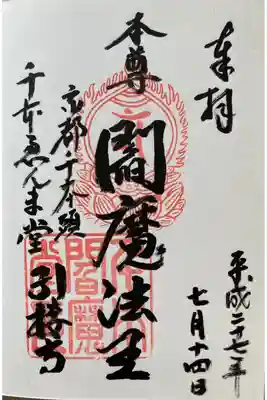 奉拝
平成二七年
七月十四日
本尊
閻魔法王
京都千本頭
千本ゑんま堂
引接寺